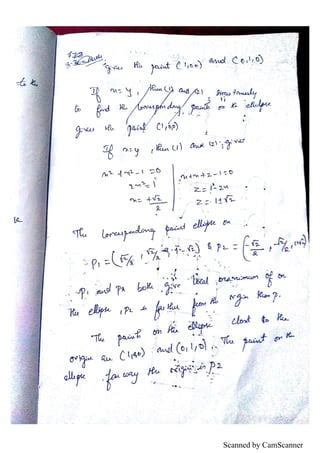 gives the point (1,0,0) and (0,1,0)
If x=y, then (1) and (2)
to find the corresponding points on the ellipse
gives the point (1,0,0)
If x=y, then (1) and (2), gives
x²+x²-1=0
2x²=1
x=±√2/2
x+x+z-1=0
z=1-2x
z=1±√2
The corresponding point ellipse on
P1=(√2/2, √2/2, 1-√2) & P2=(-√2/2, -√2/2, 1+√2)
P1 and P2 both give local maximum of on
the ellipse, P2 is farther from the orgin than P.
The points on the ellipse closet to the
origin are (1,0,0) and (0,1,0). The point on the
ellipse far way the origin is P2
Scanned by CamScanner